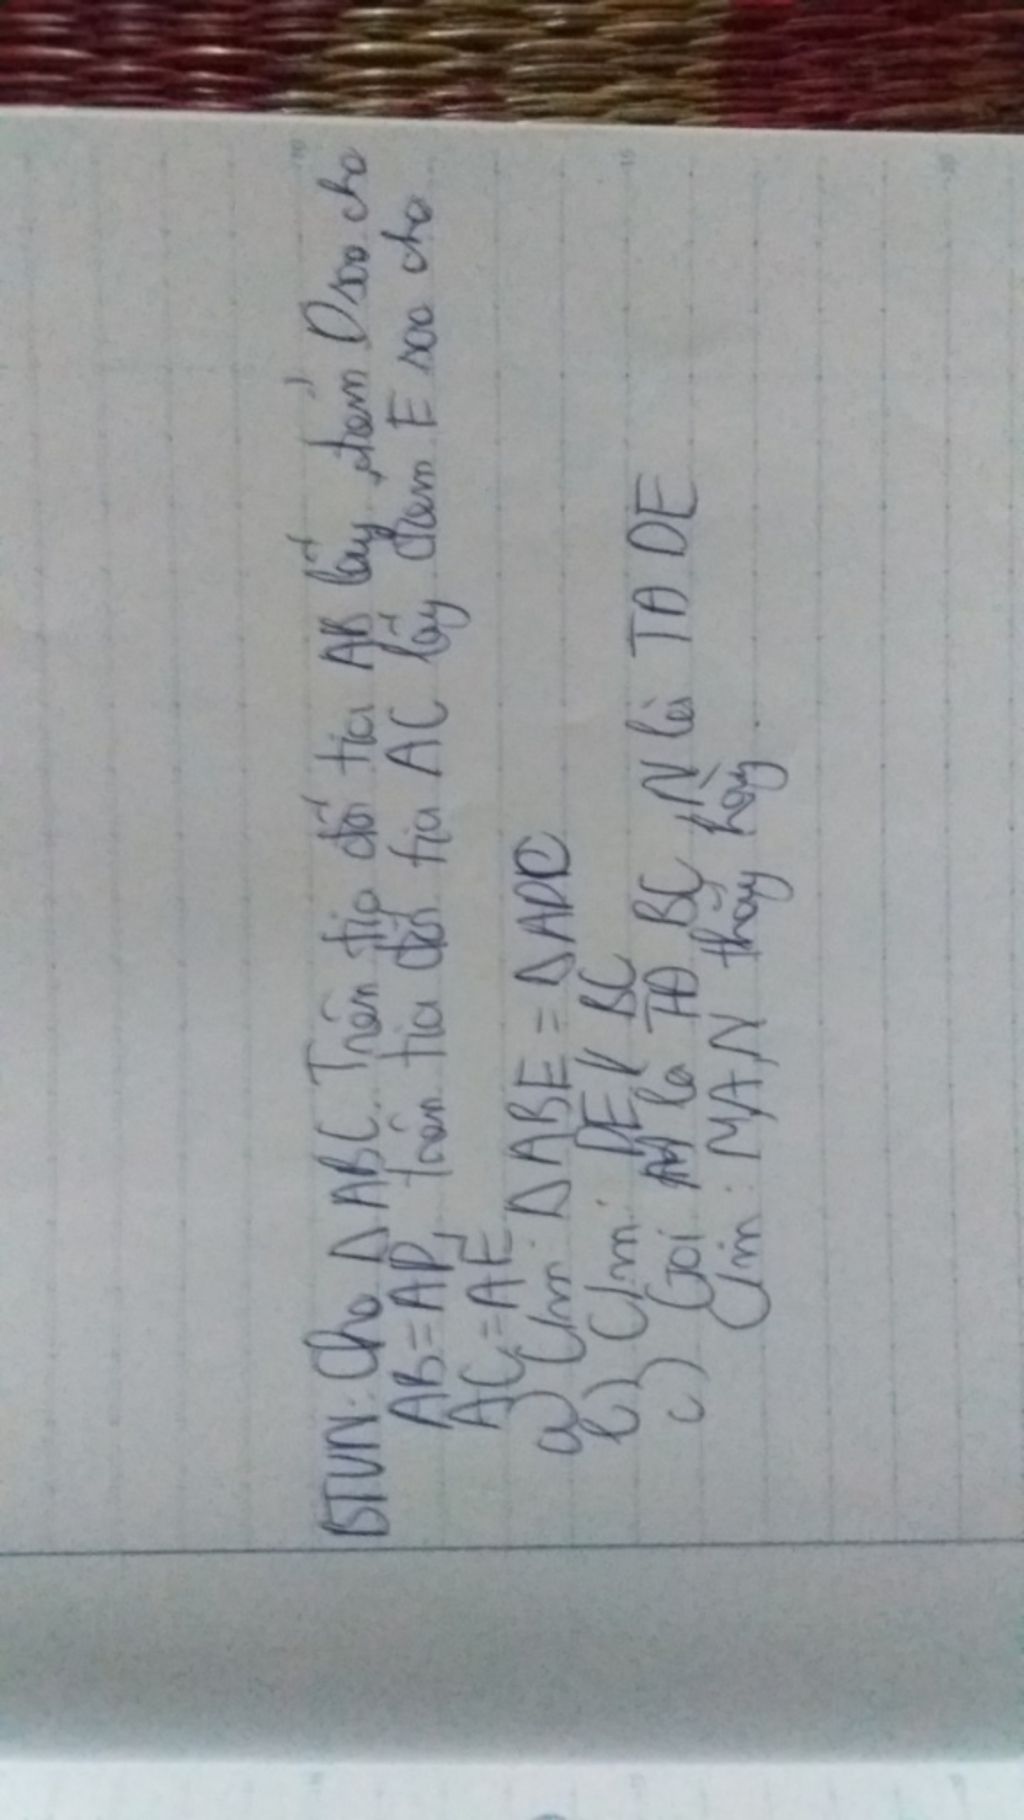 BTVN: Cho Δ ABC. Trên tia đối tia AB lấy điểm D sao cho
AB = AD, trên tia đối tia AC lấy điểm E sao cho
AC = AE
a) C/m: Δ ABE = Δ ADC
b) C/m: DE // BC
c) Gọi M là TĐ BC, N là TĐ DE
C/m: M,A,N thẳng hàng